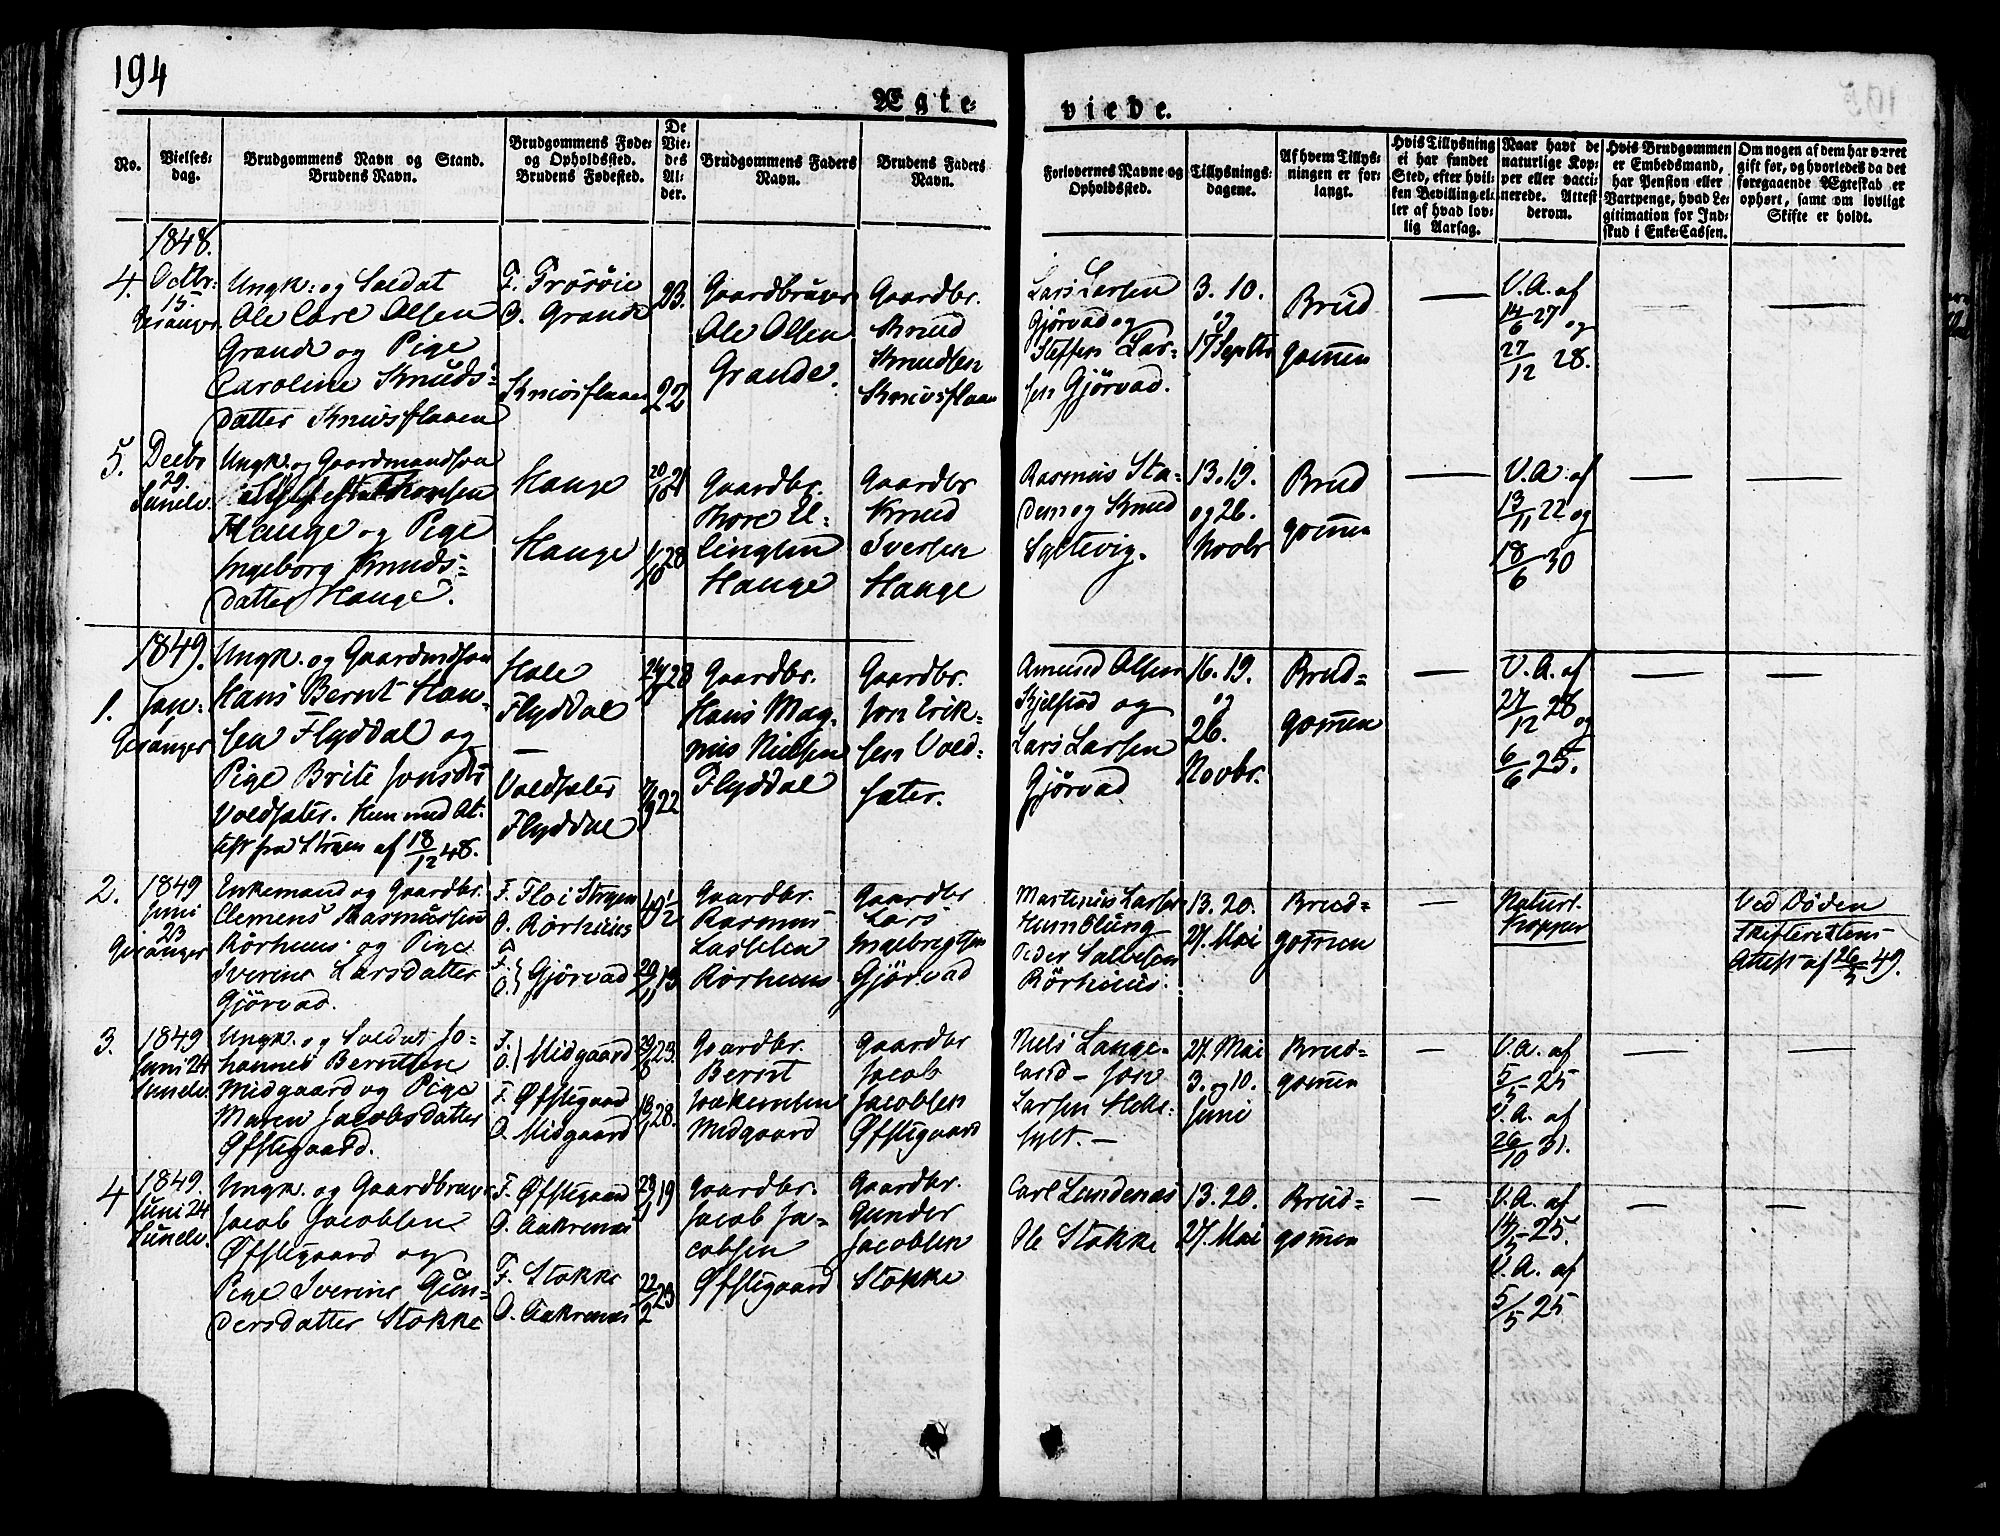 194
Ægte-
viede.
No.
Vielses-
dag.
Brudgommens Navn og Stand.
Brudens Navn.
Brudgommens Føde-
og Opholdssted.
Brudens Fødested.
De
Vie-
des
Al-
der.
Brudgommens Faders
Navn.
Brudens Faders
Navn.
Forlovernes Navne og
Opholdssted.
Tillysnings-
dagene.
Af hvem Tillys-
ningen er for-
langt.
Hvis Tillysning
ei har fundet
Sted, efter hvil-
ken Bevilling el-
ler af hvad lov-
lig Aarsag.
Naar havt de
naturlige Kop-
per eller vacci-
nerede. Attest
derom.
Hvis Brudgommen
er Embedsmand,
har Pension eller
Vartpenge, hvad Le-
gitimation for Ind-
skud i Enke-Cassen.
Om nogen af dem har været
gift før, og hvorledes da det
foregaaende Ægteskab er
ophørt, samt om lovligt
Skifte er holdt.
1848.
4.
Octbr.
15.
Geranger
Ungk: og Soldat
Ole Carl Olsen
Grande og Pige
Caroline Knuds-
datter Knivsflaaen
F.
O. Grande
Knivsflaaen
23.
22
Gaardbruger
Ole Olsen
Grande.
Gaardbr.
Knud
Knudsen
Knivsflaaen
Lars Larsen
Gjørvad og
Steffen Lar-
sen Gjørvad.
3. 10.
og
17 Septbr
Brud
gomen
V. A. af
14/6 27 og
27/12 28.
5.
Decbr
29
Sunelv.
Ungk. og Gaardmandssøn
Hauge og Pige
Ingeborg Knuds-
datter Hauge.
Hauge
Hauge
28
Gaardbr.
Thore El-
lingsen
Hauge
Gaardbr
Knud
Iversen
Hauge
Rasmus Sta-
dem og Knud
Syltevig.
13. 19.
og 26.
Novbr
Brud
gomen
V. A. af
13/11 22 og
18/6 30
1849.
1.
Jan.
Geranger
Ungk. og Gaardmdssøn
Hans Bernt Han-
sen Flyddal og
Pige Brite Jonsdtr
Voldsæter. Hun med At-
test fra Stryen af 18/12 48.
Hole
Flyddal
Voldsæter
Flyddal
28
22
Gaardbr.
Hans Mag-
nus Nielsen
Flyddal
Gaardbr.
Jon Erik-
sen Vold-
sæter.
Amund Olsen
Kjelstad og
Lars Larsen
Gjørvad
16. 19.
og
26.
Novbr.
Brud-
gomen
V. A. af
27/12 28 og
6/6 25.
2.
1849
Juni
23
Geranger
Enkemand og Gaardbr.
Clemens Rasmussen
Rørhuus og Pige
Iverine Larsdatter
Gjørvad.
F. Flo i Stryen
O. Rørhuus
F. O. } Gjørvad
49 1/2
Gaardbr.
Rasmus
Larsen
Rørhuus
Gaardbr
Lars
Ingebrigtsen
Gjørvad
Martinus Larsen
Humblung
Peder
Rørhuus.
13. 20.
27. Mai
Brud-
gomen
Naturl.
Kopper
Ved Døden
Skifterettens
Attest af 26/5 49.
3.
1849
Juni 24
Sunelv.
Ungk. og Soldat Jo-
hannes Berntsen
Midgaard og Pige
Maren Jacobsdatter
Øfstegaard.
F. O. } Midgaard
F. Øfstegaard
O. Midgaard
23.
28.
Gaardbr.
Bernt
Joakimsen
Midgaard
Gaardbr
Jacob
Jacobsen
Øfstegaard
Niels Lange-
land - Jon
Larsen Helle-
sylt. -
27. Mai
3. og 10.
Juni
Brud-
gomen
V. A. af
5/5 25
V. A. af
26/10 31.
4
1849.
Juni 24
Sunelv.
Ungk. og Gaardbruger
Jacob Jacobsen
Øfstegaard og
Pige Iverine Gun-
dersdatter Stokke
F. Øfstegaard
O. Aakrenæs
F. Stokke
O. Aakrenæs
22/2 23
Gaardbr.
Jacob Ja-
cobsen
Øfstegaard
Gaardbr.
Gunder
Jacobsen
Stokke
Carl Lundenæs
Ole Stokke
13. 20.
27. Mai
Brud-
gomen
V. A. af
14/5 25.
V. A. af
5/5 25